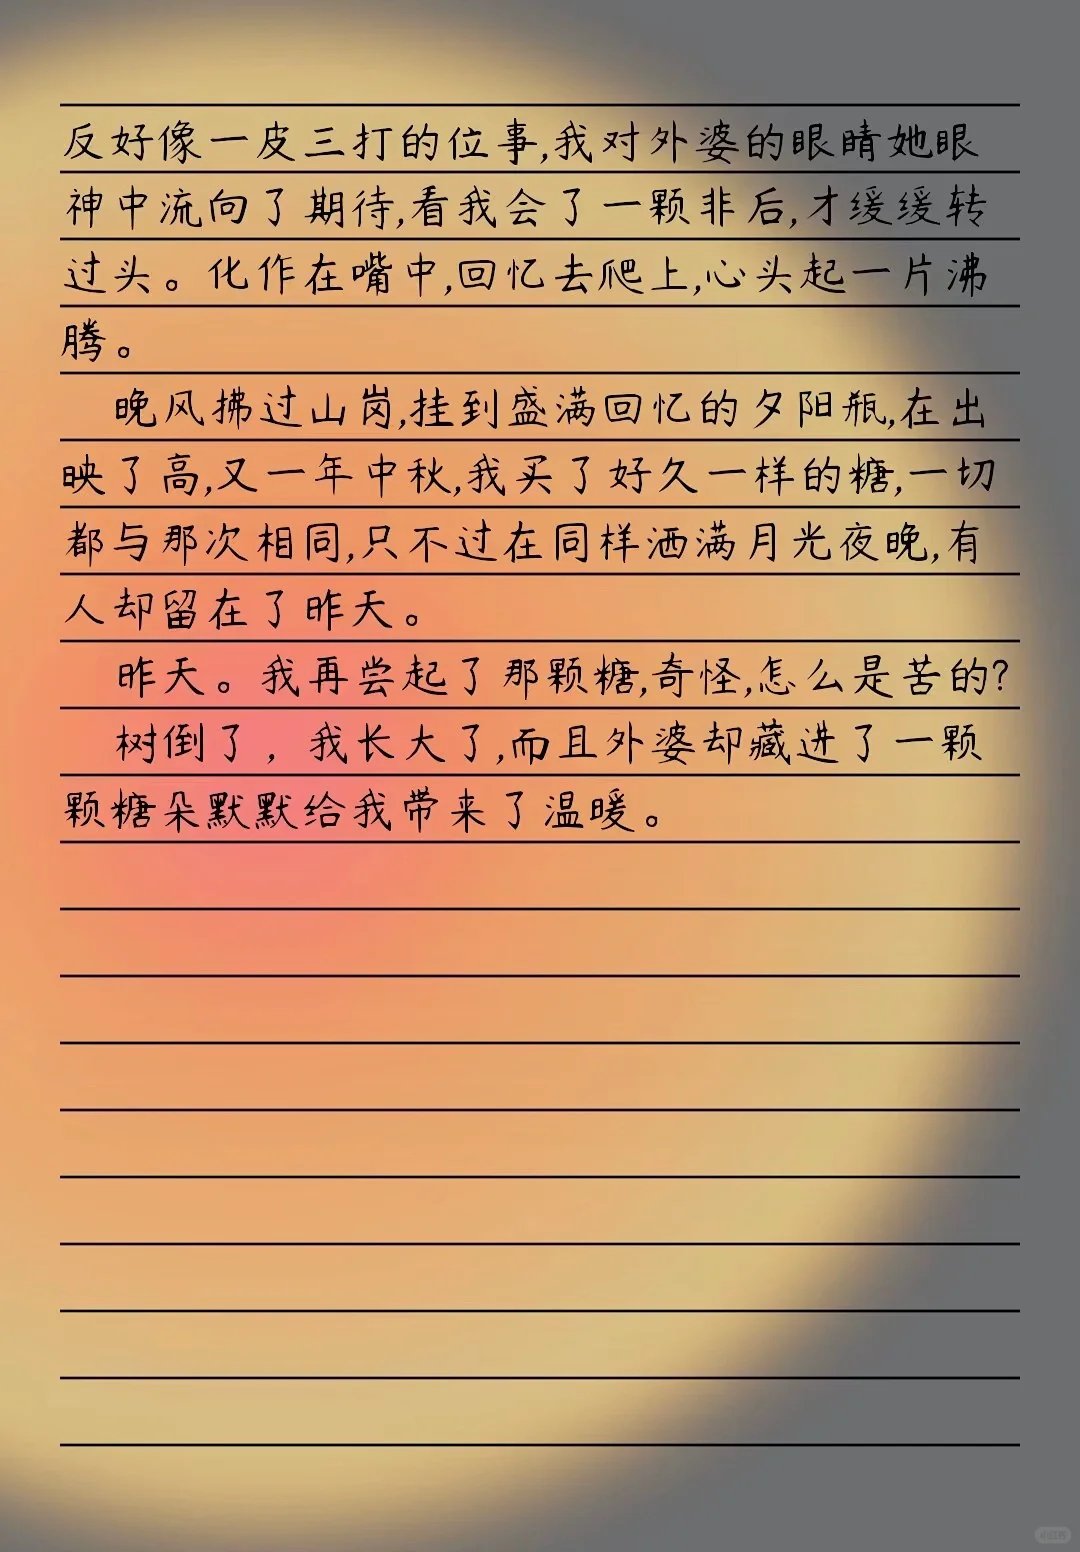 反好像一皮三打的位事,我对外婆的眼睛她眼
神中流向了期待,看我会了一颗非后,才缓缓转
过头。化作在嘴中,回忆去爬上,心头起一片沸
腾。
晚风拂过山岗,挂到盛满回忆的夕阳瓶,在出
映了高,又一年中秋,我买了好久一样的糖,一切
都与那次相同,只不过在同样洒满月光夜晚,有
人却留在了昨天。
昨天。我再尝起了那颗糖,奇怪,怎么是苦的?
树倒了，我长大了,而且外婆却藏进了一颗
颗糖朵默默给我带来了温暖。